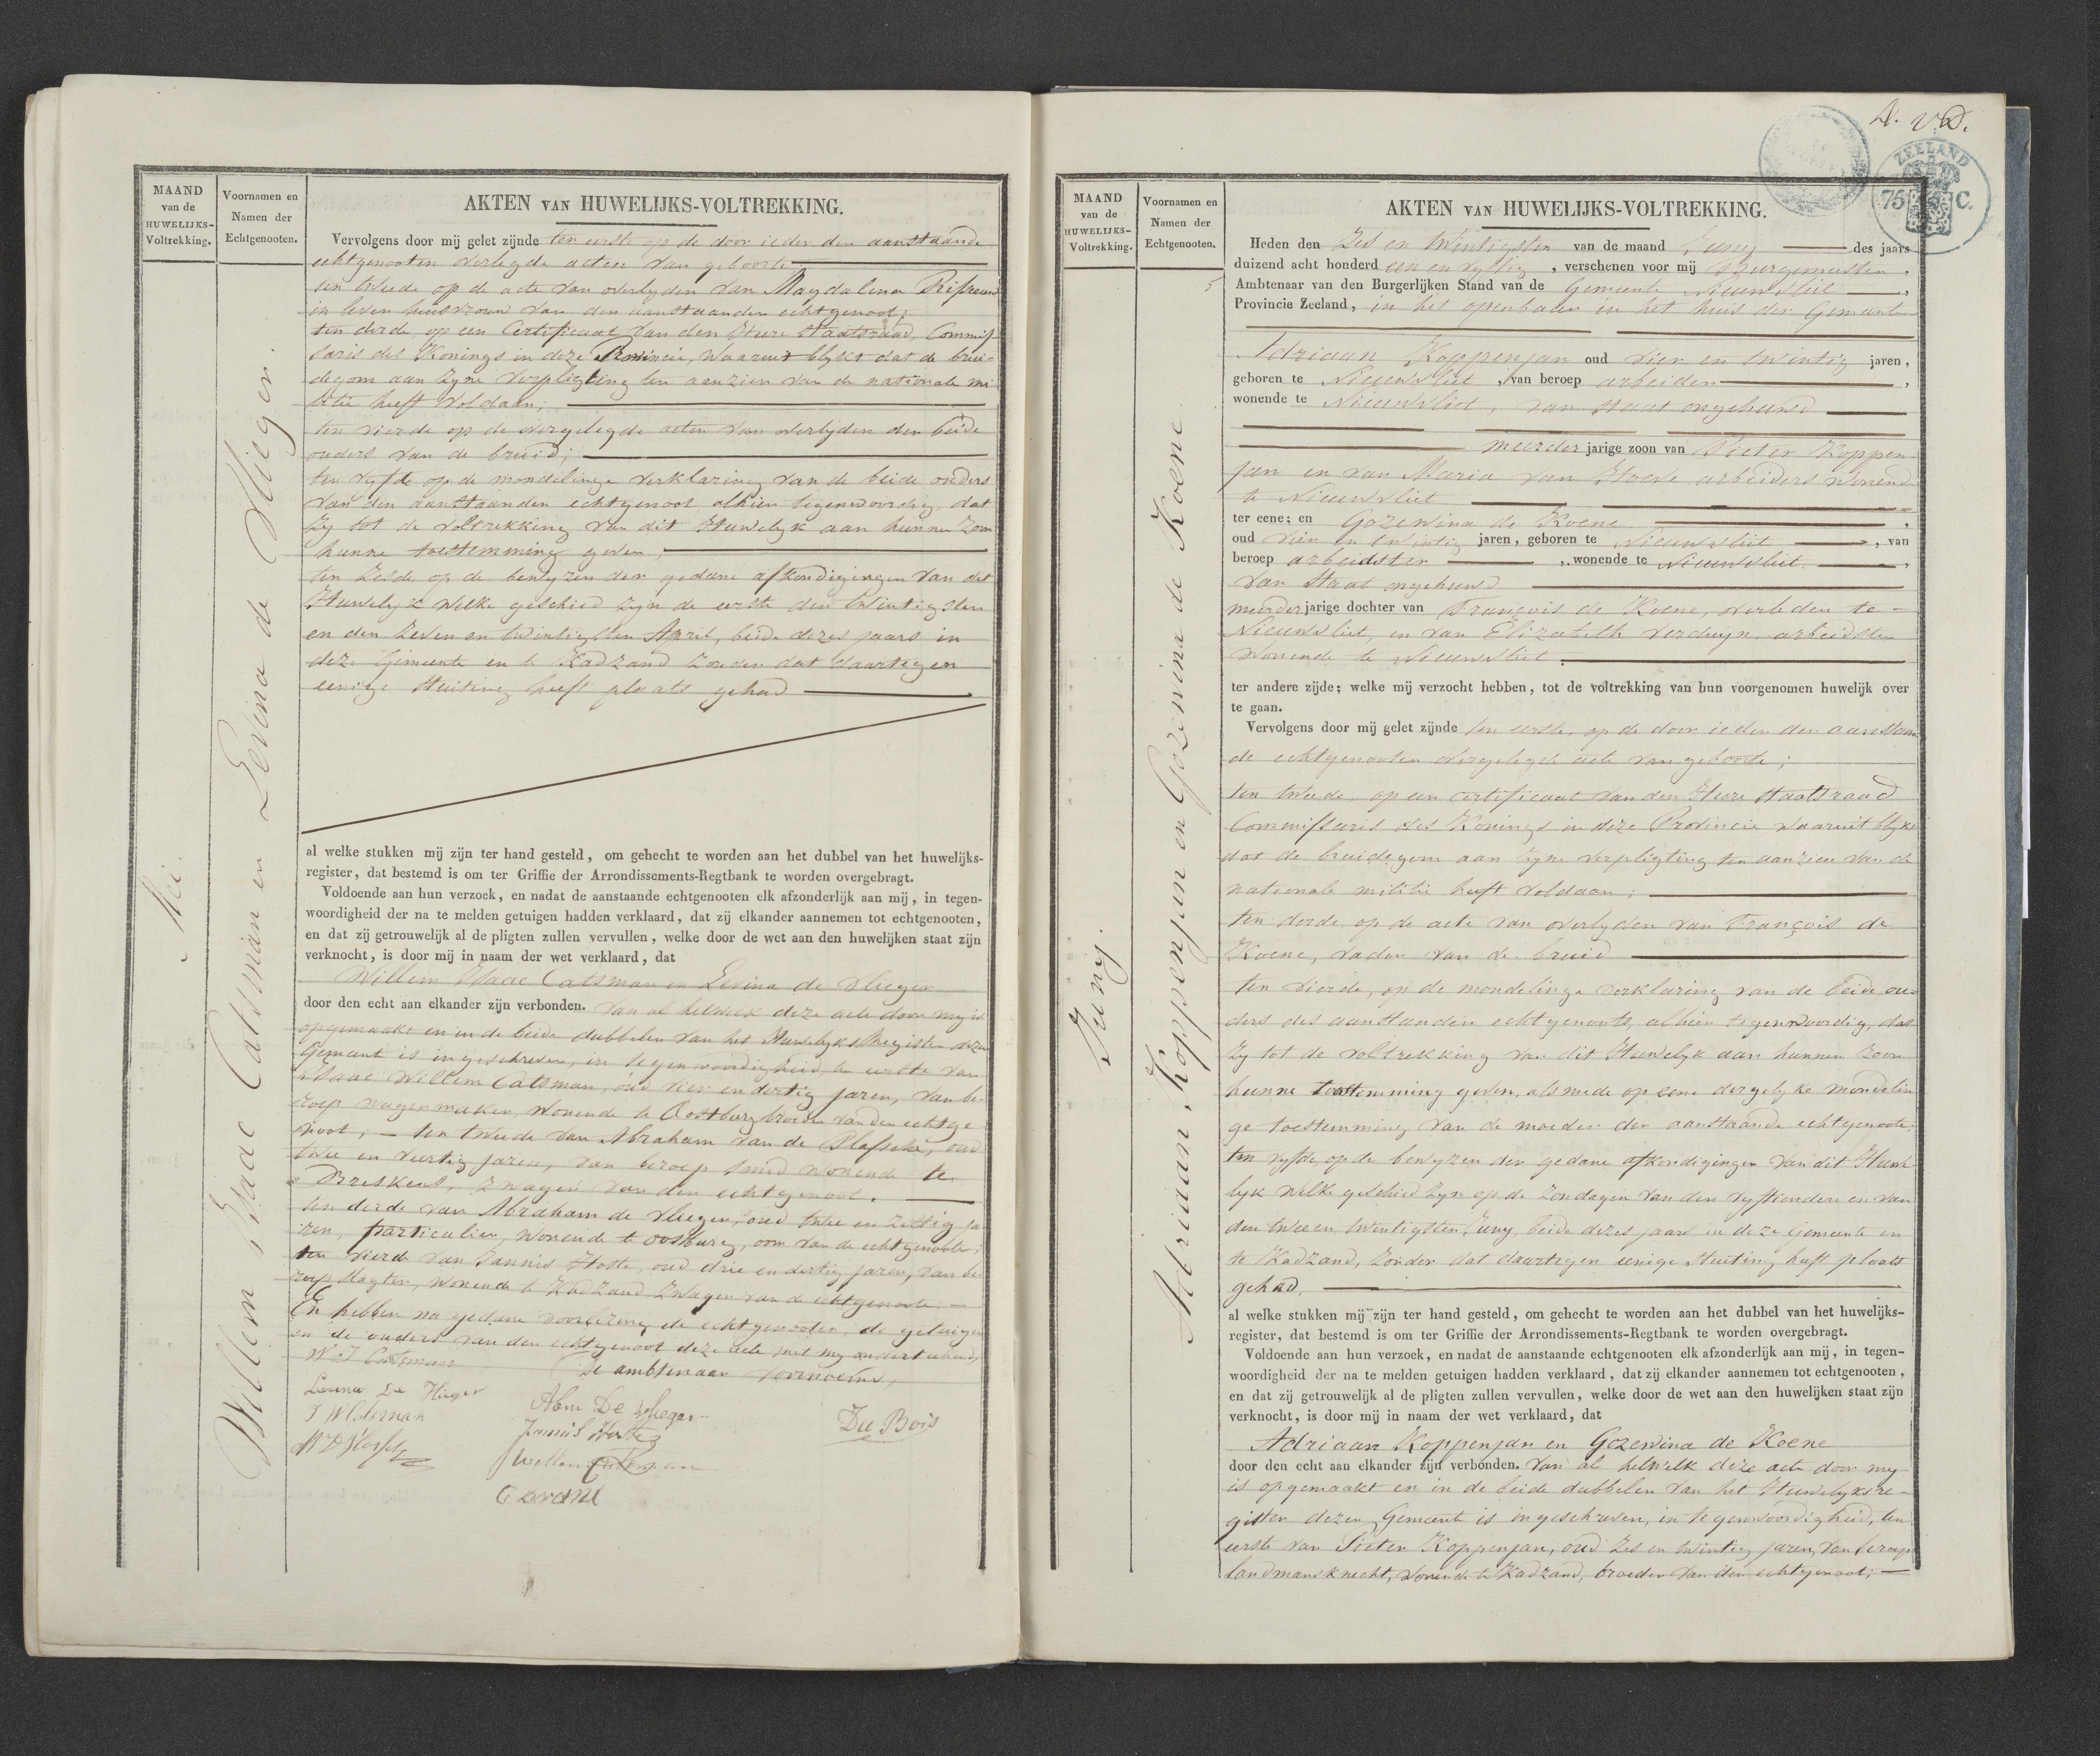 MAAND
van de
HUWELIJKS-
Voltrekking.
Voornamen en
Namen der
Echtgenooten.
AKTEN VAN HUWELIJKS-VOLTREKKING.
Mei.
Willem Isaac Catsman en Levina de Vlieger.
Vervolgens door mij gelet zijnde ten eerste op de door ieder der aanstaande
echtgenooten overlegde acten van geboorte
ten tweede op de acte van overlyden van Magdalena
in leven huisvrouw van den aanstaanden echtgenoot;
ten derde, op een Certificaat van den Heere Staatsraad, Commis-
saris des Konings in deze Provincie, waaruit blykt dat de brui-
degom aan zyne verpligting ten aanzien van de nationale mi
litie heeft voldaan;
ten vierde op de overgelegde acten van overlyden der beide
ouders van de bruid;
ten vyfde op de mondelinge verklaring van de beide ouders
van den aanstaanden echtgenoot alhier tegenwoordig, dat
zy tot de voltrekking van dit Huwelyk aan hunnen zoon
hunne toestemming geven,
ten zesde op de bewyzen der gedane afkondigingen van dit
Huwelyk welke geschied zyn de eerste den twintigsten
en den zeven en twintigsten April, beide dezes jaars in
deze Gemeente en te Kadzand zonder dat daartegen
eenige stuiting heeft plaats gehad
al welke stukken mij zijn ter hand gesteld, om gehecht te worden aan het dubbel van het huwelijks-
register, dat bestemd is om ter Griffie der Arrondissements-Regtbank te worden overgebragt.
Voldoende aan hun verzoek, en nadat de aanstaande echtgenooten elk afzonderlijk aan mij, in tegen-
woordigheid der na te melden getuigen hadden verklaard, dat zij elkander aannemen tot echtgenooten,
en dat zij getrouwelijk al de pligten zullen vervullen, welke door de wet aan den huwelijken staat zijn
verknocht, is door mij in naam der wet verklaard, dat
Willem Isaac Catsman en Levina de Vlieger
door den echt aan elkander zijn verbonden. Van al hetwelk deze acte door my is
opgemaakt en in de beide dubbelen van het Huwelyks Register dezer
Gemeente is ingeschreven, in tegenwoordigheid, ten eerste van
Isaac Willem Catsman, oud vier en dertig jaren, van be-
roep wagenmaker, wonende te Oostburg broeder van den echtge-
noot; – ten tweede van Abraham van de Plassche, oud
twee en veertig jaren, van beroep smid wonende te
Breskens, zwager van den echtgenoot.
ten derde van Abraham de Vlieger, oud twee en zestig ja-
ren, particulier, wonende te Oostburg, oom van de echtgenoote;
ten vierde van Jannis Hoste, oud drie en dertig jaren, van be-
roep slagter, wonende te Kadzand zwager van de echtgenoote.
En hebben na gedane voorlezing de echtgenooten, de getuigen
en de ouders van den echtgenoot deze acte met my onderteekend,
De ambtenaar voornoemd,
W I Catsman
Levina De Vlieger
I W Catsman
Abm De Vlieger
Jannis Hoste
Willem Catsman
Du Bois
A. v D.
ZEELAND
75 C.
MAAND
van de
HUWELIJKS-
Voltrekking.
Voornamen en
Namen der
Echtgenooten.
AKTEN VAN HUWELIJKS-VOLTREKKING.
5
Juny.
Adriaan Koppenjan en Gozewina de Koene
Heden den Zes en twintigsten van de maand Juny des jaars
duizend acht honderd een en vyftig, verschenen voor mij Burgemeester,
Ambtenaar van den Burgerlijken Stand van de Gemeente Nieuwvliet,
Provincie Zeeland, in het openbaar in het huis der Gemeente
Adriaan Koppenjan oud vier en twintig jaren,
geboren te Nieuwvliet, van beroep arbeider,
wonende te Nieuwvliet, van staat ongehuwd
meerderjarige zoon van Pieter Koppen
jan en van Maria van Hoeve arbeiders wonend
te Nieuwvliet
ter eene; en Gozewina de Koene,
oud vier en twintig jaren, geboren te Nieuwvliet, van
beroep arbeidster, wonende te Nieuwvliet,
van staat ongehuwd
meerderjarige dochter van François de Koene, overleden te
Nieuwvliet, en van Elizabeth Verduyn, arbeidster
wonende te Nieuwvliet.
ter andere zijde; welke mij verzocht hebben, tot de voltrekking van hun voorgenomen huwelijk over
te gaan.
Vervolgens door mij gelet zijnde ten eerste, op de door ieder der aanstaan-
de echtgenooten overgelegde acte van geboorte;
ten tweede, op een certificaat van den Heere Staatsraad
Commissaris des Konings in deze Provincie waaruit blykt
dat de bruidegom aan zyne verpligting ten aanzien van de
nationale militie heeft voldaan;
ten derde op de acte van overlyden van François de
Koene, vader van de bruid
ten vierde, op de mondelinge verklaring van de beide ou-
ders des aanstaanden echtgenoots, alhier tegenwoordig, dat
zy tot de voltrekking van dit Huwelyk aan hunnen zoon
hunne toestemming geven, alsmede op eene dergelyke mondelin
ge toestemming van de moeder der aanstaande echtgenoote;
ten vyfde, op de bewyzen der gedane afkondigingen van dit Huwe
lyk welke geschied zyn op de zondagen van den vyftienden en van
den twee en twintigsten Juny, beide dezes jaars in deze Gemeente en
te Kadzand, zonder dat daartegen eenige stuiting heeft plaats
gehad,
al welke stukken mij zijn ter hand gesteld, om gehecht te worden aan het dubbel van het huwelijks-
register, dat bestemd is om ter Griffie der Arrondissements-Regtbank te worden overgebragt.
Voldoende aan hun verzoek, en nadat de aanstaande echtgenooten elk afzonderlijk aan mij, in tegen-
woordigheid der na te melden getuigen hadden verklaard, dat zij elkander aannemen tot echtgenooten,
en dat zij getrouwelijk al de pligten zullen vervullen, welke door de wet aan den huwelijken staat zijn
verknocht, is door mij in naam der wet verklaard, dat
Adriaan Koppenjan en Gozewina de Koene
door den echt aan elkander zijn verbonden. Van al hetwelk deze acte door my
is opgemaakt en in de beide dubbelen van het Huwelyksre-
gister dezer Gemeente is ingeschreven, in tegenwoordigheid, ten
eerste van Pieter Koppenjan, oud zes en twintig jaren, van beroep
landmansknecht, wonende te Kadzand, broeder van den echtgenoot;